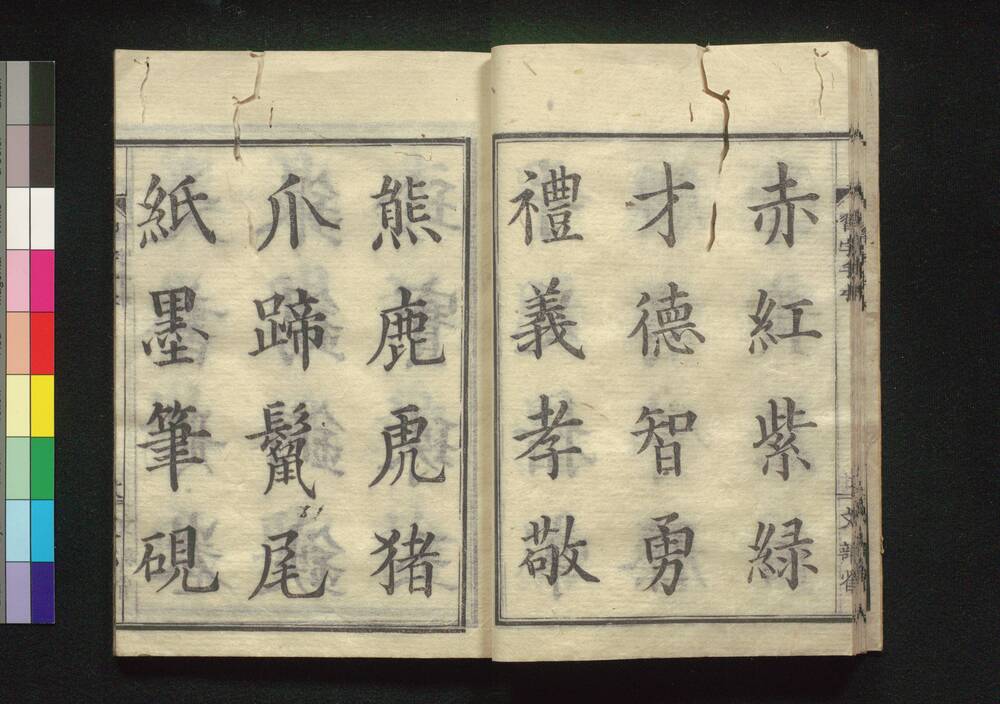 赤紅紫緑
才德智勇
禮義孝敬
熊鹿虎猪
爪蹄鬣尾
紙墨筆硯